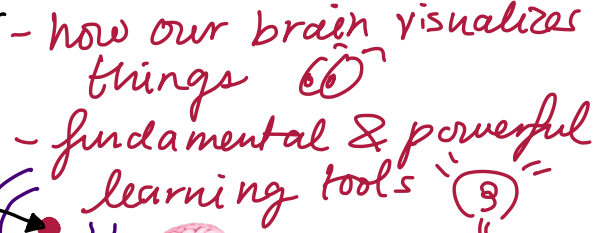 - how our brain visualizes
things
- fundamental & powerful
learning tools